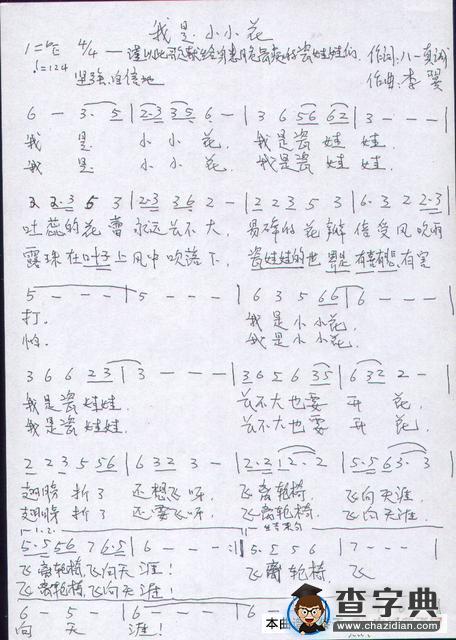 我是小小花
1=♭E 4/4 —谨以此歌献给身患脆骨病的瓷娃娃们 作词:八一真诚
♩=124 坚强、自信地 作曲:李翼
6 - 3· 5 | 2·3 3 5 6 - | 3 6 5 6 6 2 | 3 - - - |
我 是 小 小 花, 我是瓷 娃 娃.
我 是 小 小 花, 我是瓷 娃 娃.
2 2·3 5 3 | 2·3 3 6 2 - | 2 2 3 5 3 | 6· 3 2 2·3 |
吐蕊的花 蕾 永远长不大, 易碎的花 瓣 偿受风吹雨
露珠在叶子上风中 吹落下, 瓷娃娃的世界是有喜有悲、有害
5 - - - | 5 - - - | 6 3 5 6 6 | 6 - - - |
打. 我是小小花,
怕. 我是小小花,
3 6 6 2 3 | 3 - - - | 3 6 5 6 3 5 | 6 3 2 2 - |
我是瓷娃娃. 长不大也要 开 花,
我是瓷娃娃. 长不大也要 开 花,
2 2 3 5 5 6 | 6 3 2 3 - | 2·2 1 2· 2 | 5·5 6 3· 3 |
翅膀 折了 还想飞呀, 飞离轮椅, 飞向天涯,
翅膀 折了 还要飞呀, 飞离轮椅, 飞向天涯.
1.2. 结束句
5·5 5 6 7 6 5 | 6 - - - :‖ 5· 5 5 6 | 7 - - - |
飞离轮椅,飞向天 涯! 飞离轮椅, 飞
飞离轮椅,飞向天 涯!
6 - 5 - | 6 - - - | 6 - - -
向 天 涯!
本曲
查字典
www.chazidian.com